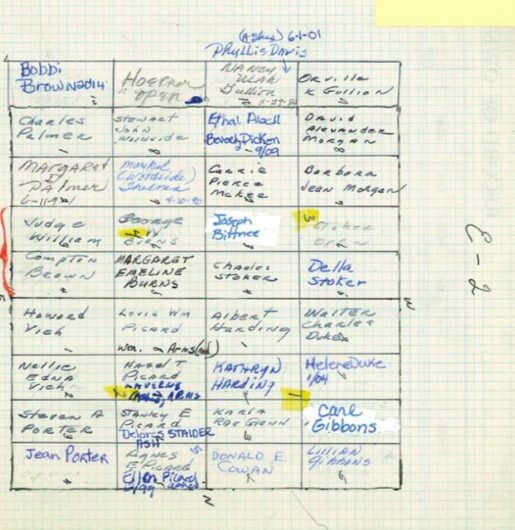 (Ashes) 6-1-01
Phyllis Davis
Bobbi
Brown 2014
Hoerman
open
Nancy
Leah
Gullion
11-29-
Orville
K Gullion
Charles
Palmer
Stewart
John
Woodside
Ethel Abell
Beverly Dicken
9/09
David
Alexander
Morgan
Margaret
D
Palmer
6-11-91
(Woodside)
Thelma
4-10-90
Carrie
Pierce
McKee
Barbara
Jean Morgan
Judge
William
George
W
Burns
Joseph
Bittner
3
Stoker
open
Compton
Brown
Margaret
Emeline
Burns
Charles
Stoker
Della
Stoker
E-2
Howard
Vich
Louis Wm
Picard
Wm. Arms
Albert
Harding
Walter
Charles
Duke
Nellie
Edna
Vich
Hazel T
Picard
Laverne
Arms
Kathryn
Harding
Helene Duke
1/04
Steven A
Porter
Stanley E
Picard
Delores Stalder
Ash
Karin
Rae Glenn
1
Carl
Gibbons
Jean Porter
Agnes
E Picard
Ellen Picard
Donald E.
Cowan
Lillian
Gibbons
N